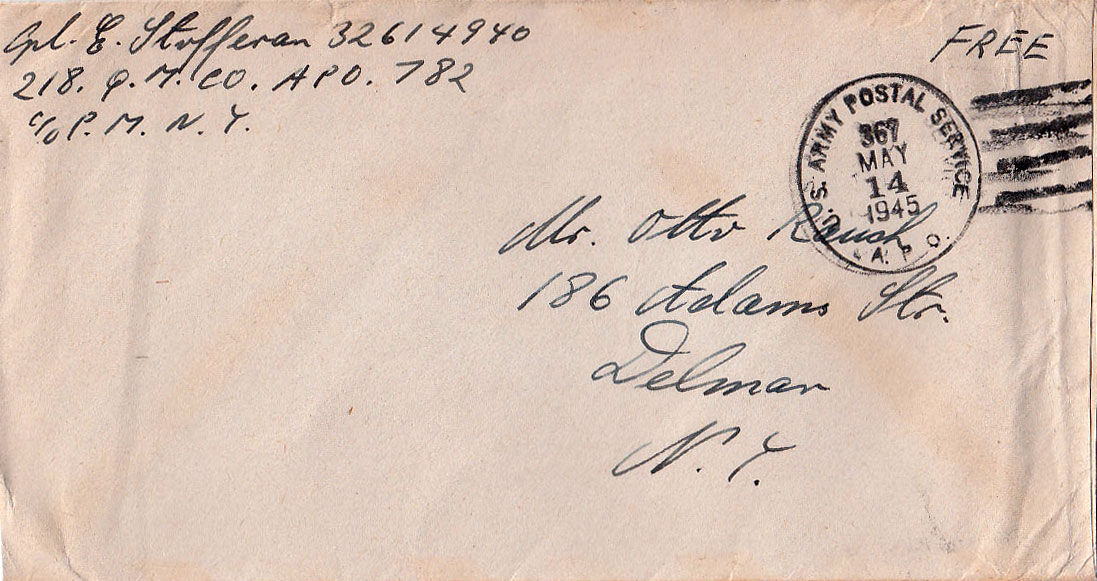 Cpl. E. Stofferan 32614940
218. Q. M. CO. APO. 782
c/o P. M. N. Y.
FREE
U.S. ARMY POSTAL SERVICE
367
MAY
14
1945
A. P. O.
Mr. Otto Rauch
186 Adams Str.
Delmar
N. Y.